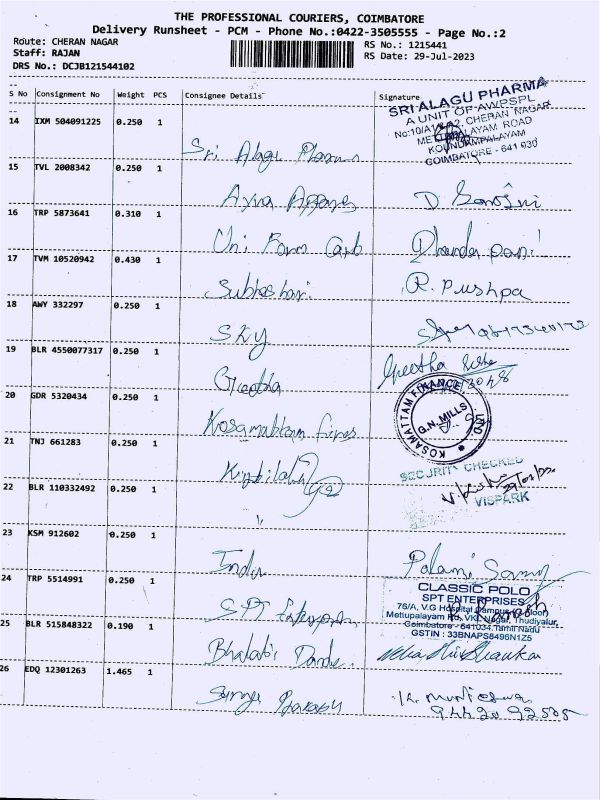 THE PROFESSIONAL COURIERS, COIMBATORE
Delivery Runsheet - PCM - Phone No.:0422-3505555 - Page No.:2
Route: CHERAN NAGAR
RS No.: 1215441
Staff: RAJAN
RS Date: 29-Jul-2023
DRS No.: DCJB121544102
S No Consignment No Weight PCS Consignee Details Signature
SRI ALAGU PHARMA
A UNIT OF AWPSPL
CHERAN NAGAR
METTUPALAYAM ROAD
KOUNDAMPALAYAM
COIMBATORE - 641 030
14 IXM 504091225 0.250 1
Sri Alagu Pharma
15 TVL 2008342 0.250 1
16 TRP 5873641 0.310 1
Uni Form Carb
17 TVM 10520942 0.430 1
Subhashari R. Pushpa
18 AWY 332297 0.250 1
SKY
19 BLR 4550077317 0.250 1
Geetha
Geetha
20 GDR 5320434 0.250 1
KOSAMATTAM FINANCE
G.N. MILLS
Kosamattam
21 TNJ 661283 0.250 1
SECURITY CHECKED
VISPARK
22 BLR 110332492 0.250 1
"
23 KSM 912602 0.250 1
Indu Palani Samy
24 TRP 5514991 0.250 1
CLASSIC POLO
SPT ENTERPRISES
76/A, V.G Hospital Campus Floor
Mettupalayam Rd, VKL Nagar, Thudiyalur,
Coimbatore - 641034.Tamil Nadu
GSTIN : 33BNAPS8496N1Z5
SPT Enterprises
25 BLR 515848322 0.190 1
26 EDQ 12301263 1.465 1
Surya Prakash
94420 92505